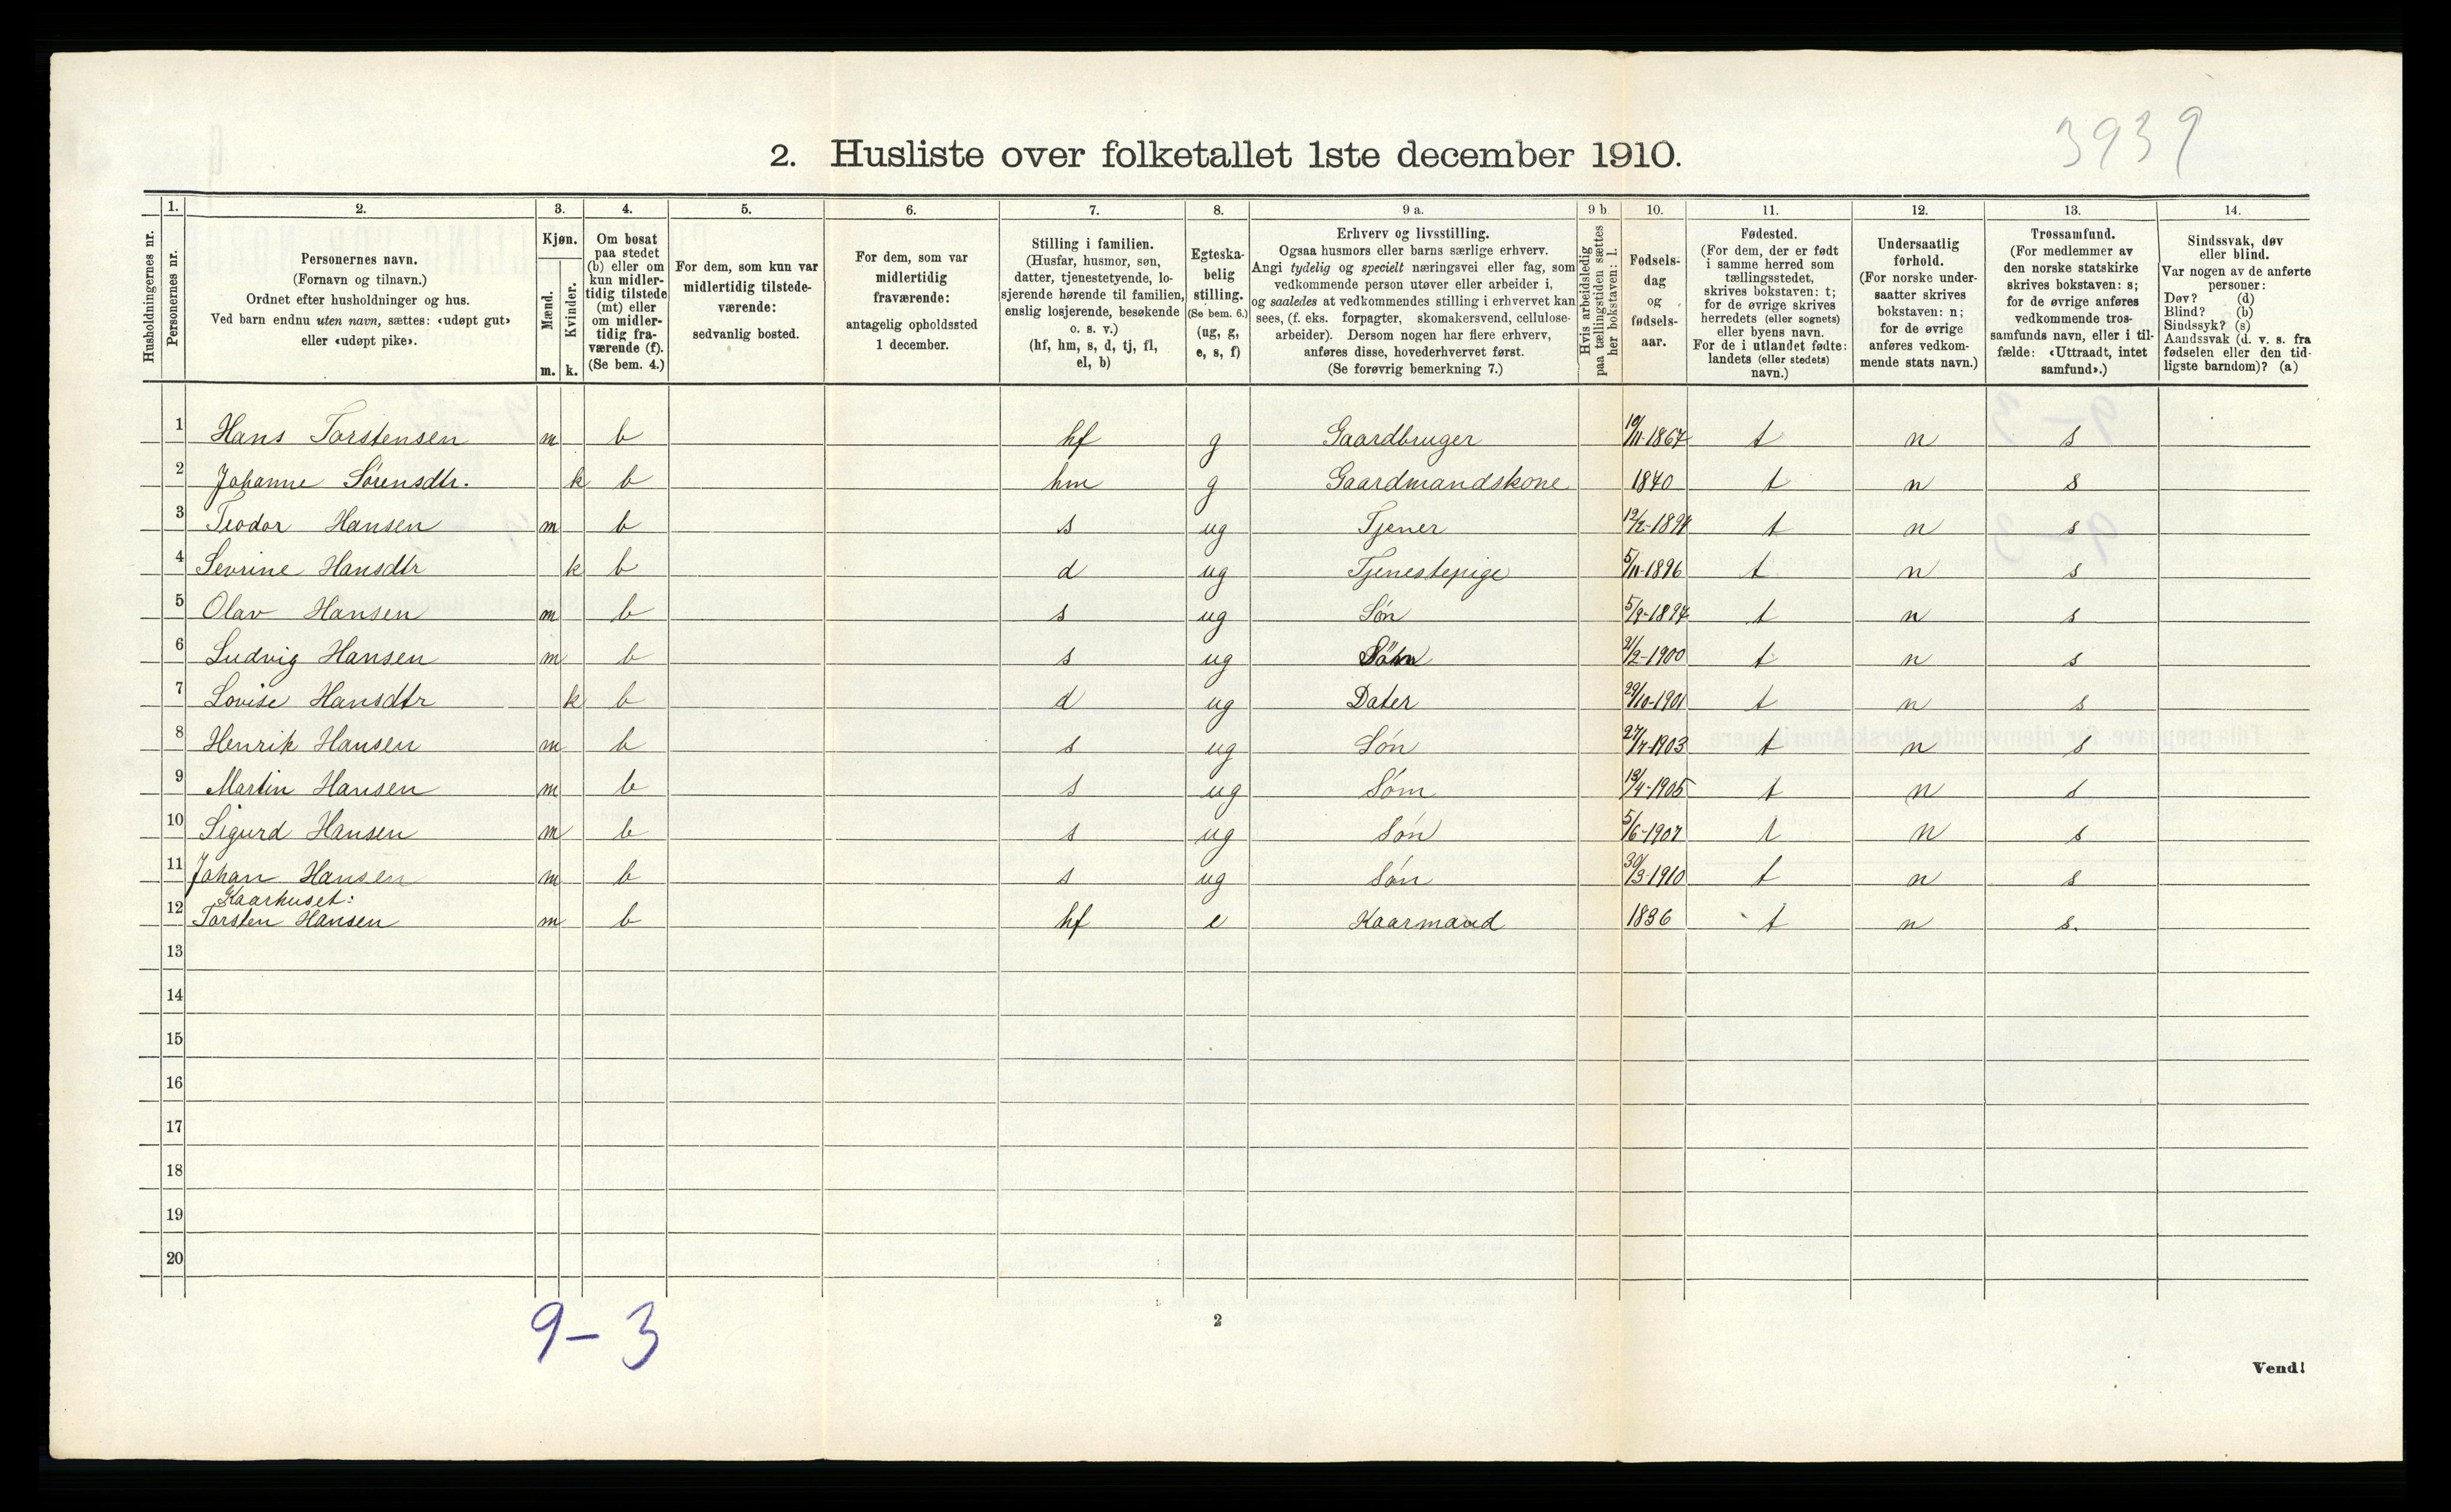 3939
2. Husliste over folketallet 1ste december 1910.
1. 2. 3. 4. 5. 6. 7. 8. 9 a. 9 b 10. 11. 12. 13. 14.
Husholdningernes nr.
Personernes nr.
Personernes navn.
(Fornavn og tilnavn.)
Ordnet efter husholdninger og hus.
Ved barn endnu uten navn, sættes: «udøpt gut»
eller «udøpt pike».
Kjøn.
Mænd.
Kvinder.
m. k.
Om bosat
paa stedet
(b) eller om
kun midler-
tidig tilstede
(mt) eller
om midler-
tidig fra-
værende (f).
(Se bem. 4.)
For dem, som kun var
midlertidig tilstede-
værende:
sedvanlig bosted.
For dem, som var
midlertidig
fraværende:
antagelig opholdssted
1 december.
Stilling i familien.
(Husfar, husmor, søn,
datter, tjenestetyende, lo-
sjerende hørende til familien,
enslig losjerende, besøkende
o. s. v.)
(hf, hm, s, d, tj, fl,
el, b)
Egteska-
belig
stilling.
(Se bem. 6.)
(ug, g,
e, s, f)
Erhverv og livsstilling.
Ogsaa husmors eller barns særlige erhverv.
Angi tydelig og specielt næringsvei eller fag, som
vedkommende person utøver eller arbeider i,
og saaledes at vedkommendes stilling i erhvervet kan
sees, (f. eks. forpagter, skomakersvend, cellulose-
arbeider). Dersom nogen har flere erhverv,
anføres disse, hovederhvervet først.
(Se forøvrig bemerkning 7.)
Hvis arbeidsledig
paa tællingstiden sættes
her bokstaven: l.
Fødsels-
dag
og
fødsels-
aar.
Fødested.
(For dem, der er født
i samme herred som
tællingsstedet,
skrives bokstaven: t;
for de øvrige skrives
herredets (eller sognets)
eller byens navn.
For de i utlandet fødte:
landets (eller stedets)
navn.)
Undersaatlig
forhold.
(For norske under-
saatter skrives
bokstaven: n;
for de øvrige
anføres vedkom-
mende stats navn.)
Trossamfund.
(For medlemmer av
den norske statskirke
skrives bokstaven: s;
for de øvrige anføres
vedkommende tros-
samfunds navn, eller i til-
fælde: «Uttraadt, intet
samfund».)
Sindssvak, døv
eller blind.
Var nogen av de anførte
personer:
Døv? (d)
Blind? (b)
Sindssyk? (s)
Aandssvak (d. v. s. fra
fødselen eller den tid-
ligste barndom)? (a)
1 Hans Torstensen m b hf g Gaardbruger 10/11-1867 t n s
2 Johanne Sørensdtr. k b hm g Gaardmandskone 1840 t n s
3 Teodor Hansen m b s ug Tjener t n s
4 Sevrine Hansdtr k b d ug Tjenestepige 5/11-1896 t n s
5 Olav Hansen m b s ug Søn t n s
6 Ludvig Hansen m b s ug Søn 21/2-1900 t n s
7 Lovise Hansdtr k b d ug Dater 29/10-1901 t n s
8 Henrik Hansen m b s ug Søn 27/7-1903 t n s
9 Martin Hansen m b s ug Søm 19/4-1905 t n s
10 Sigurd Hansen m b s ug Søn 5/6-1907 t n s
11 Johan Hansen m b s ug Søn 30/3-1910 t n s
Kaarhuset:
12 Torsten Hansen m b hf e Kaarmand 1836 t n s.
13
14
15
16
17
18
19
20
9-3
2
Vend!